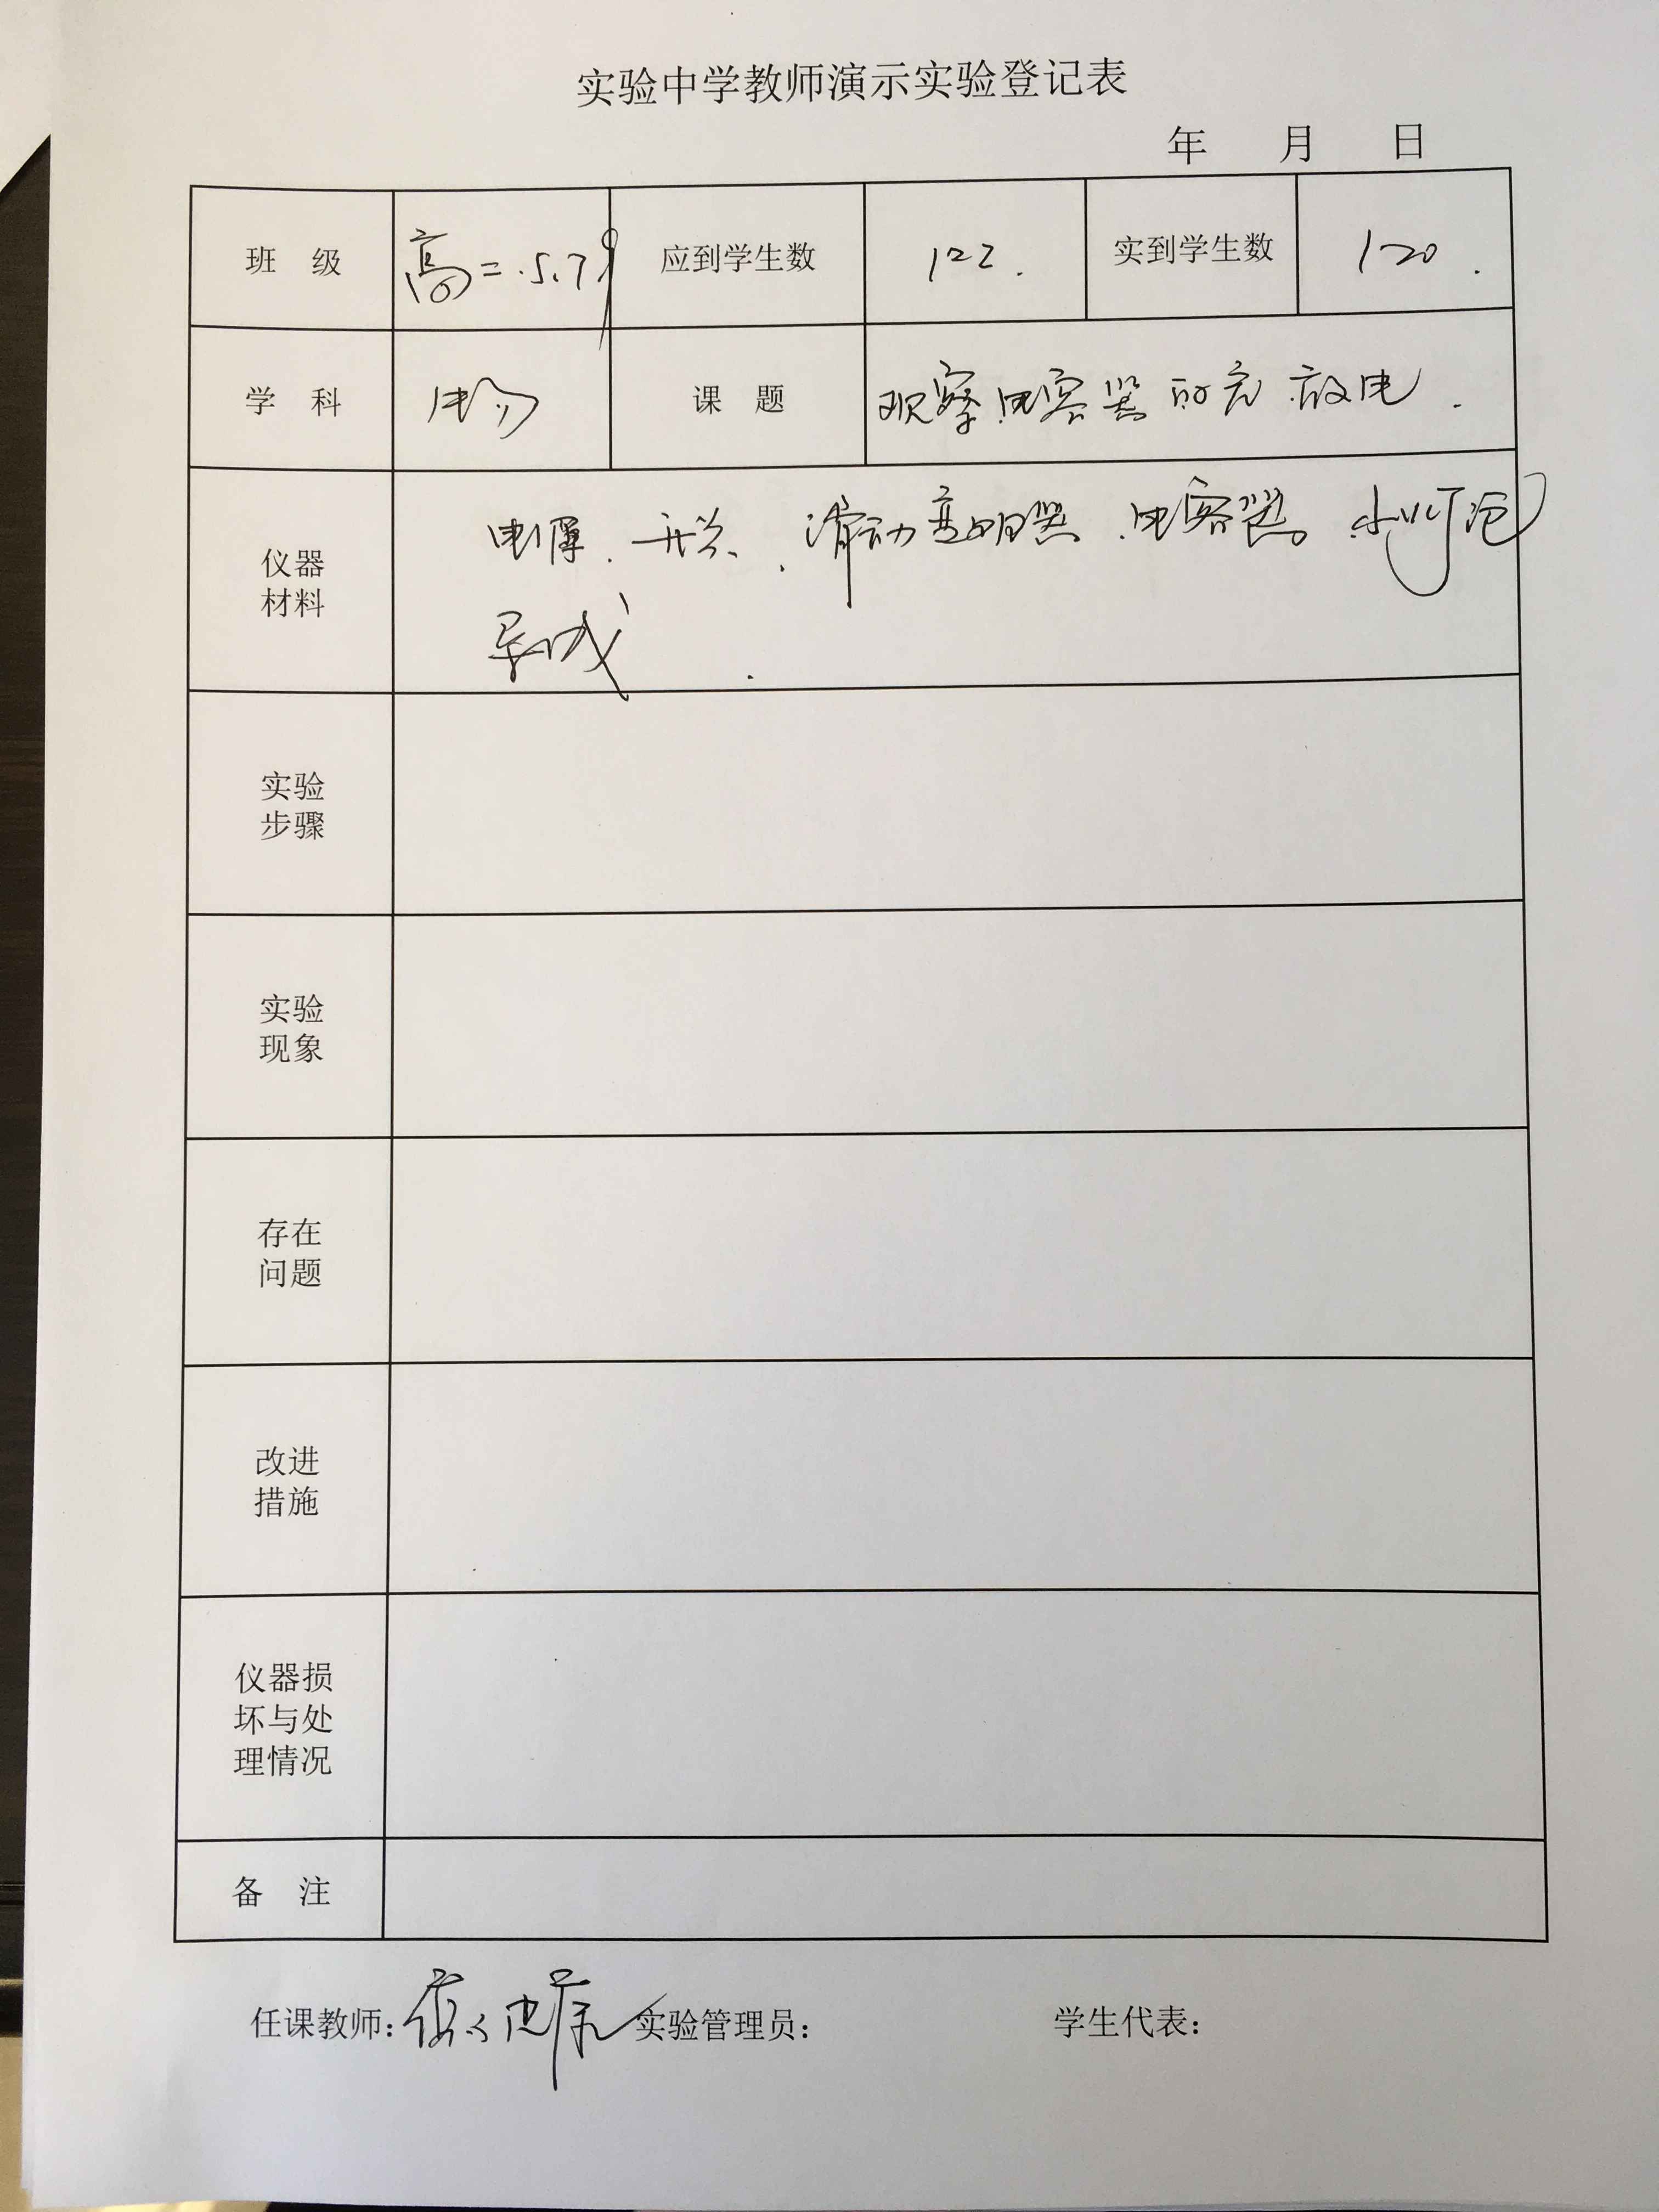 实验中学教师演示实验登记表
年 月 日
班 级 高二.5.7. 应到学生数 122. 实到学生数 120.
学 科 物 课 题 观察电容器的充放电.
仪器
材料
电源、开关、滑动变阻器、电容器、小灯泡
导线.
实验
步骤
实验
现象
存在
问题
改进
措施
仪器损
坏与处
理情况
备 注
任课教师: 实验管理员: 学生代表: